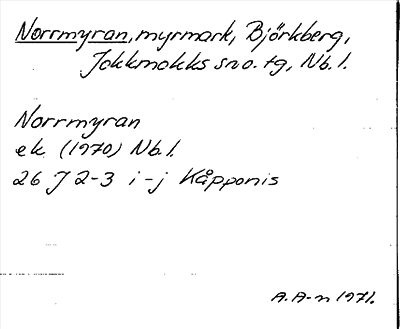 Norrmyran, myrmark, Björkberg,
Jokkmokks sno. tg, Nb. l.
Norrmyran
ek. (1970) Nb. l.
26 J 2-3 i-j Kåpponis
A. A-n 1971.